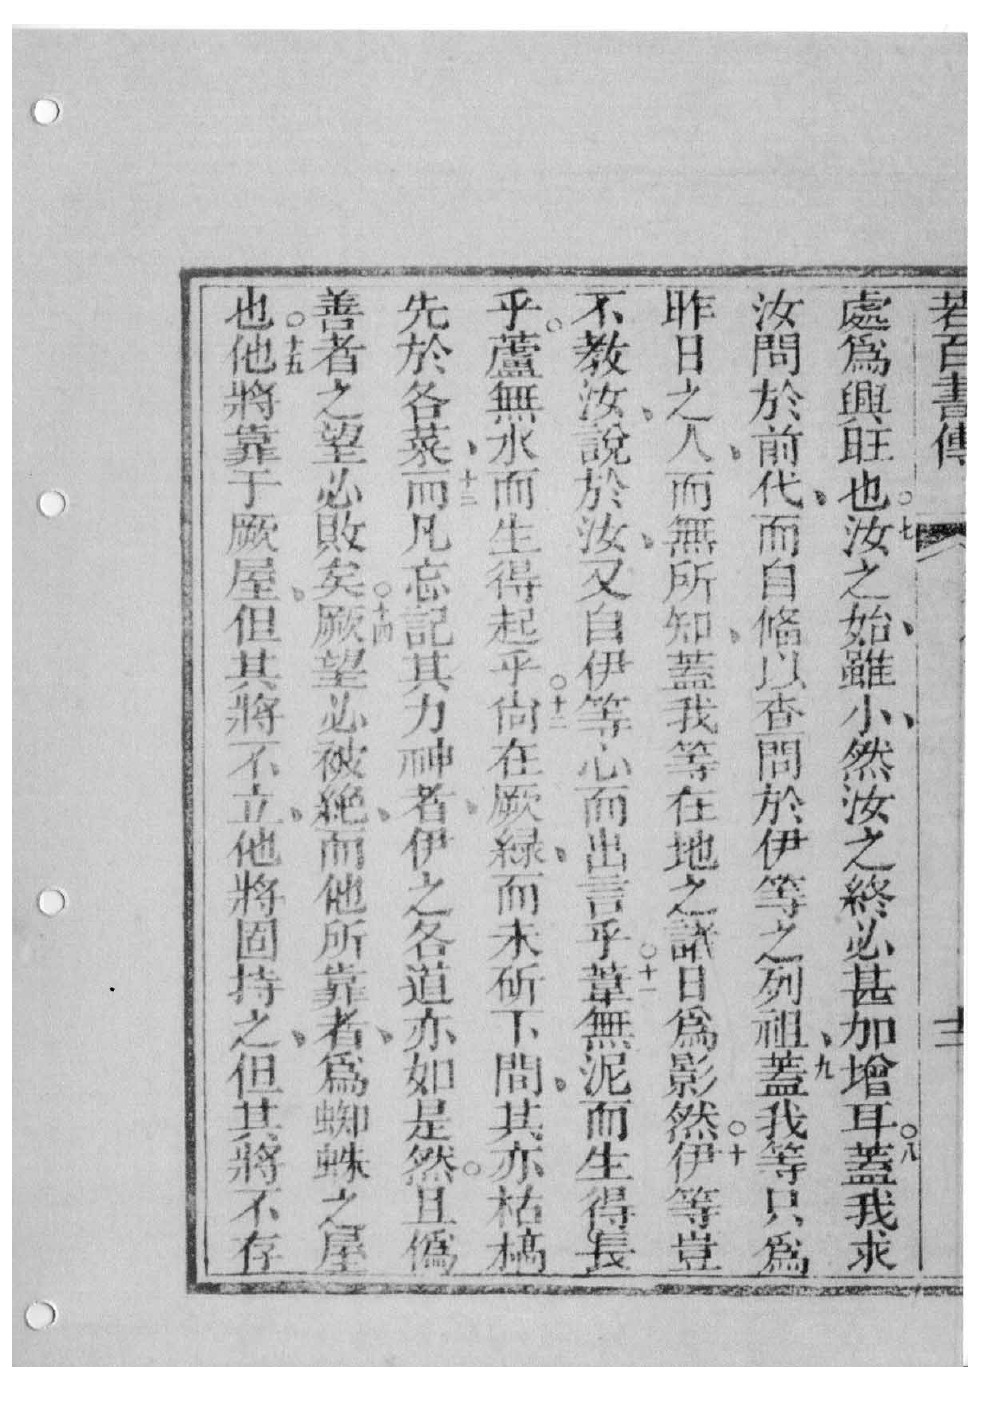 若百書傳 十二
處爲興旺也○七汝之始、雖小、然汝之終必甚加增耳○八蓋我求
汝問於前代、而自脩以查問於伊等之列祖、九蓋我等只爲
昨日之人、而無所知、蓋我等在地之諸日爲影然○十伊等豈
不教汝、說於汝、又自伊等心而出言乎○十一葦無泥而生得長
乎○蘆無水而生得起乎○十二尙在厥緑、而未斫下間、其亦枯槁
先於各菜、十三而凡忘記其力神者、伊之各道亦如是然○且僞
善者之望必敗矣○十四厥望必被絶、而他所靠者、爲蜘蛛之屋
也○十五他將靠于厥屋、但其將不立、他將固持之、但其將不存